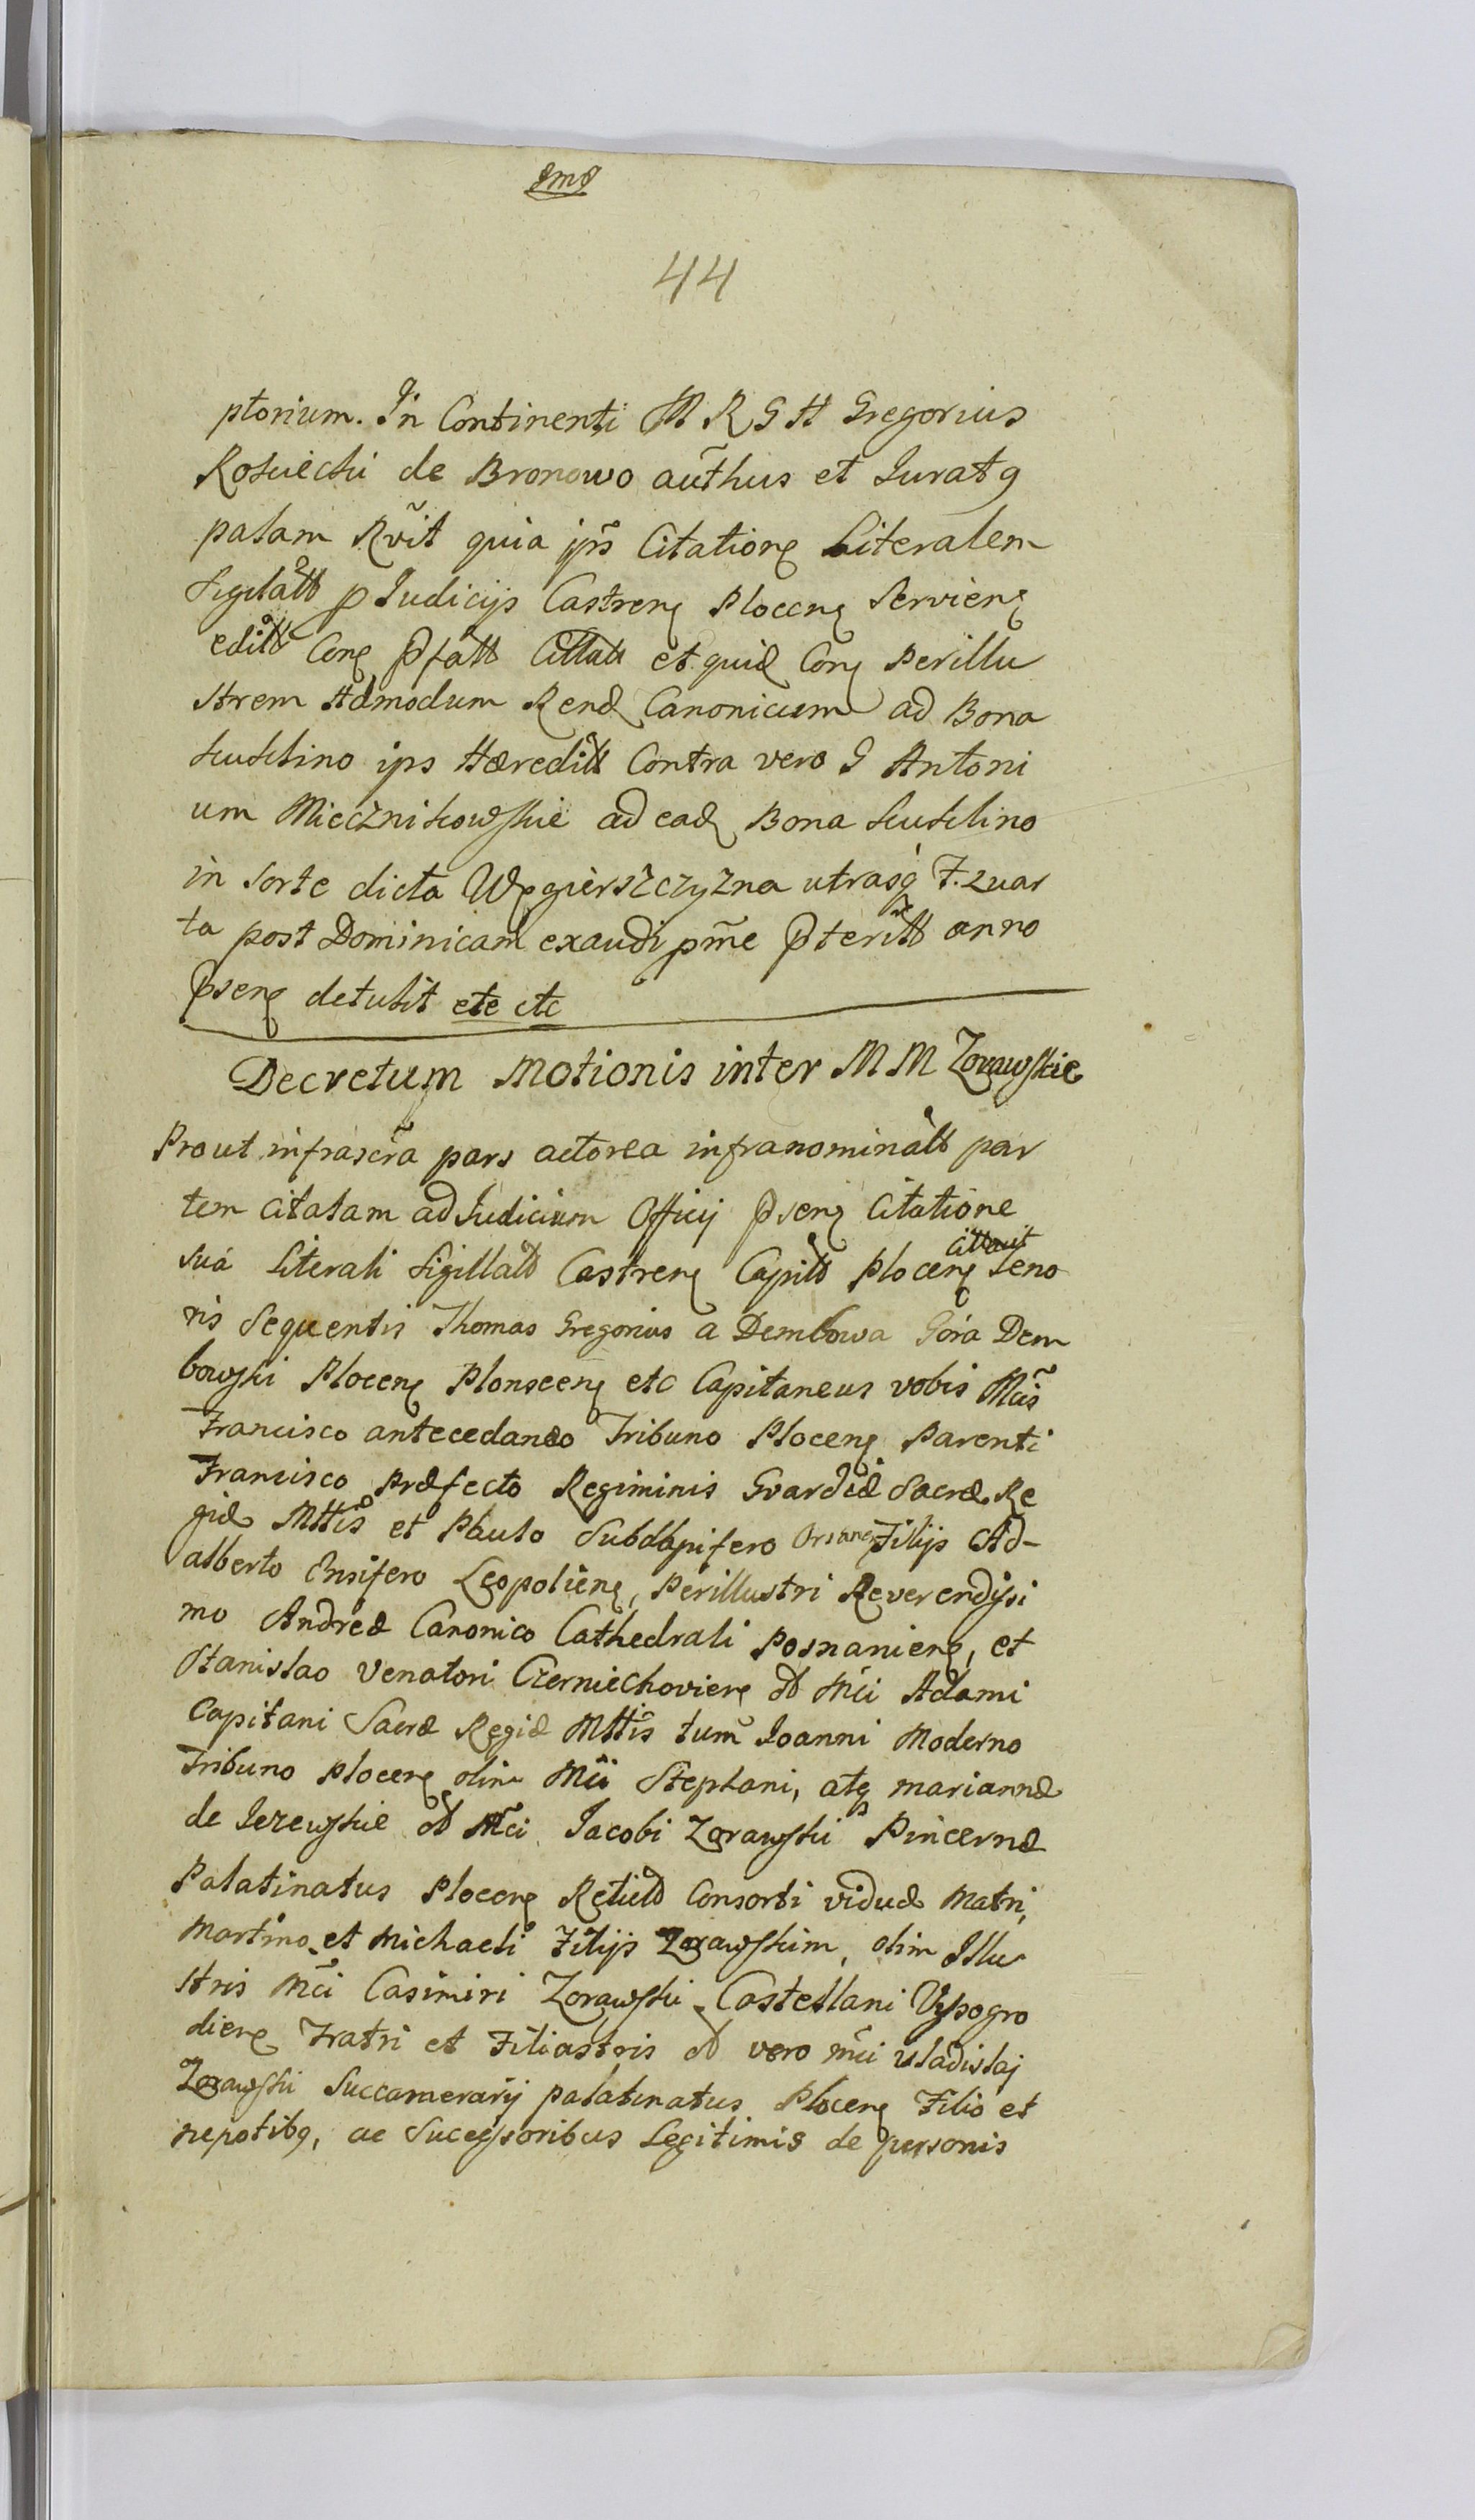 44
ptorium. In Continenti M R G H Gregorius
Rokiecki de Bronowo aũthus et Juratq
palam Rvĩt quia ips̃ Citatione Literalem
Sigilatt p Judicijs Castren Plocen Servien
editt Con Pfatt Cittatt et quid Con Perillu
strem Admodum Rend Canonicum ad Bona
Kuchlino ips Hæreditt Contra vero G Antoni
um Miecznikowskie ad ead Bona Kuchlino
in Sorte dicta Węgierszczyzna utrasq F. Quar
ta post Dominicam exaudi pm̃e Pteritt anno
Psen detulit etc etc
Decretum Motionis inter M M Zorawskie
Prout infrascrã pars actorea infranominatt par
tem Citatam ad Judicium Officij Psen Citatione
sua Literali Sigillatt Castren Capitt Plocen cittavit Teno
ris Sequentis Thomas Gregorius a Dembowa Gora Dem
bowski Plocen Plonscen etc Capitaneus vobis Mcis̃
Francisco antecedaneo Tribuno Plocen Parenti
Francisco Præfecto Regiminis Gvardiæ Sacræ Re
giæ Mttis et Paulo Subdapifero Filijs Ad-
alberto Ensifero Leopolien, Perillustri Reverendissi
mo Andreæ Canonico Cathedrali Posnanien, et
Stanislao Venatori Czerniechovien Mci Adami
Capitani Sacræ Regiæ Mttis tum Joanni Moderno
Tribuno Plocen olim Mci Stephani, atq mariannæ
de Jezewskie Mci Jacobi Zorawski Pincernæ
Palatinatus Plocen Relictt Consorti viduæ Matri,
Martino et Michaeli Filijs Zorawskim, olim Illu
stris Mci Casimiri Zorawski Castellani Vyssogro
dien Fratri et Filiastris vero mci Uladislaj
Zorawski Succamerarij palatinatus Plocen Filio et
nepotibq, ac Sucessoribus Legitimis de personis